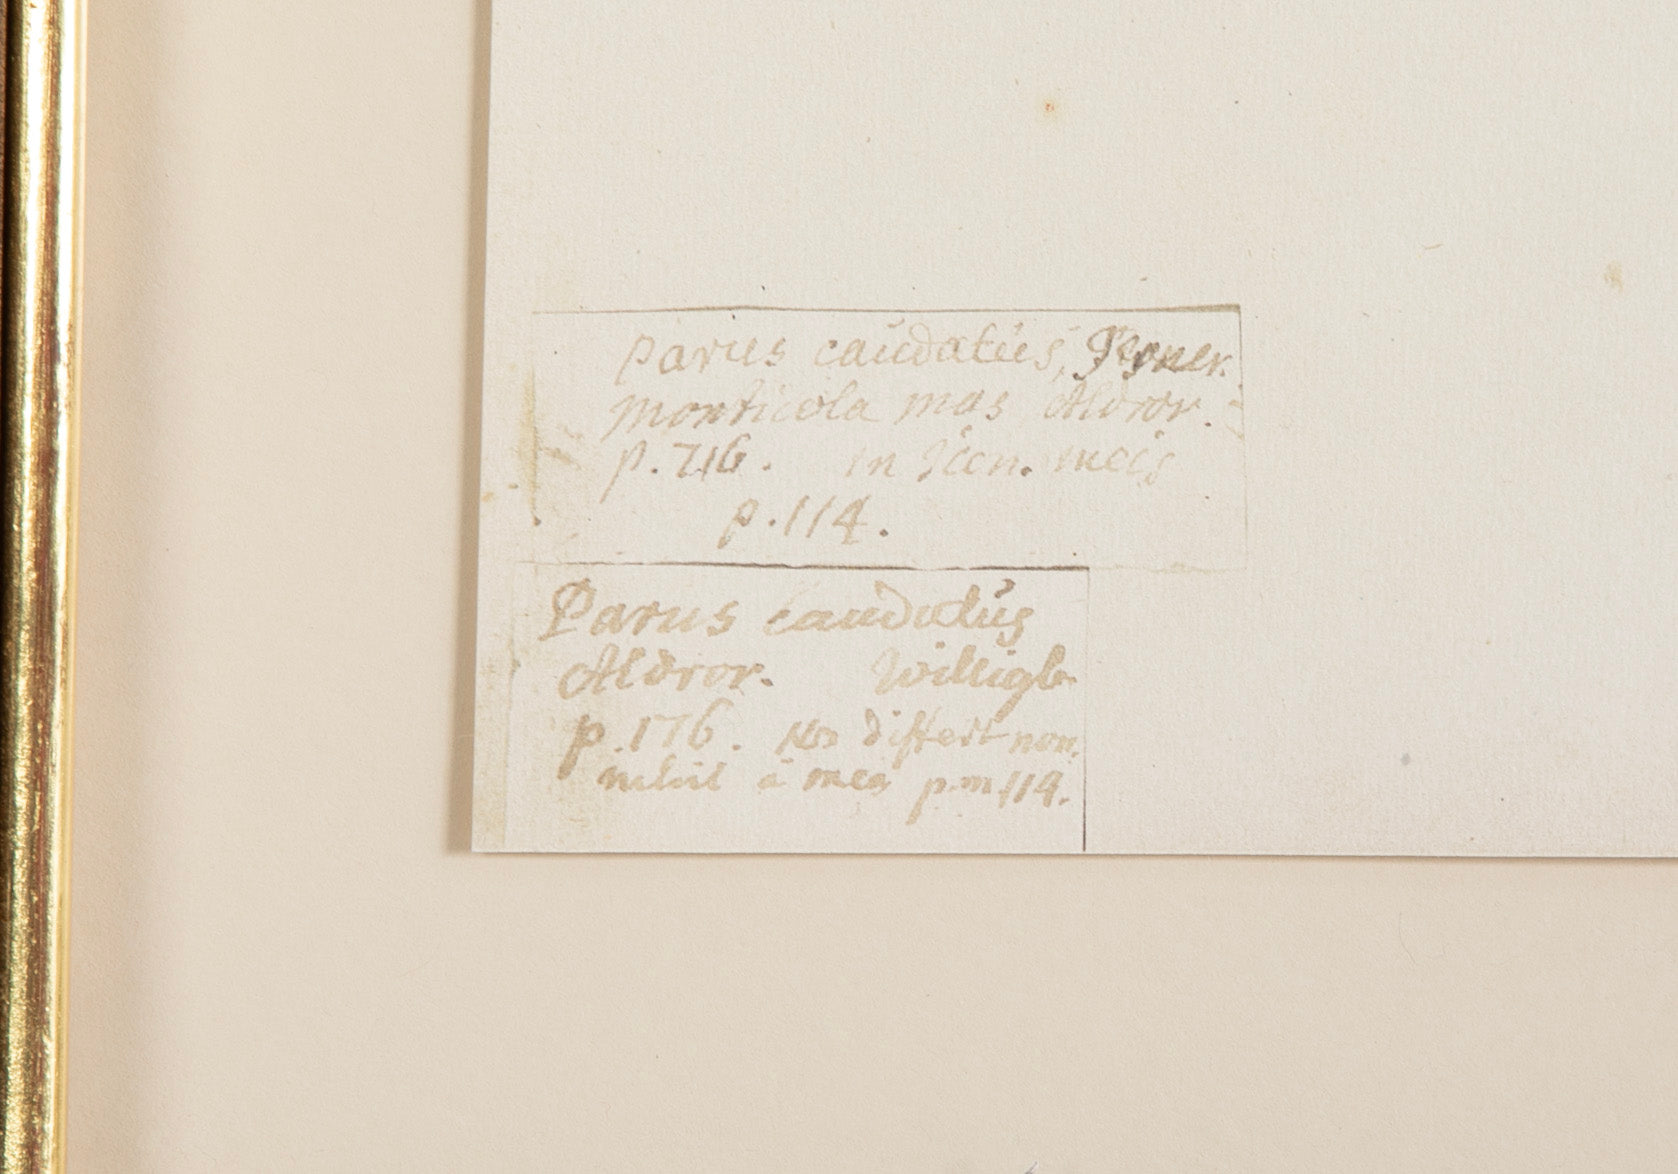 Parus caudatus,
monticola mas Aldrov.
p. 716. in Icon. meis
p. 114.
Parus caudatus
Aldrov. Willigb.
p. 176. differt non
nihil à meo p.m 114.